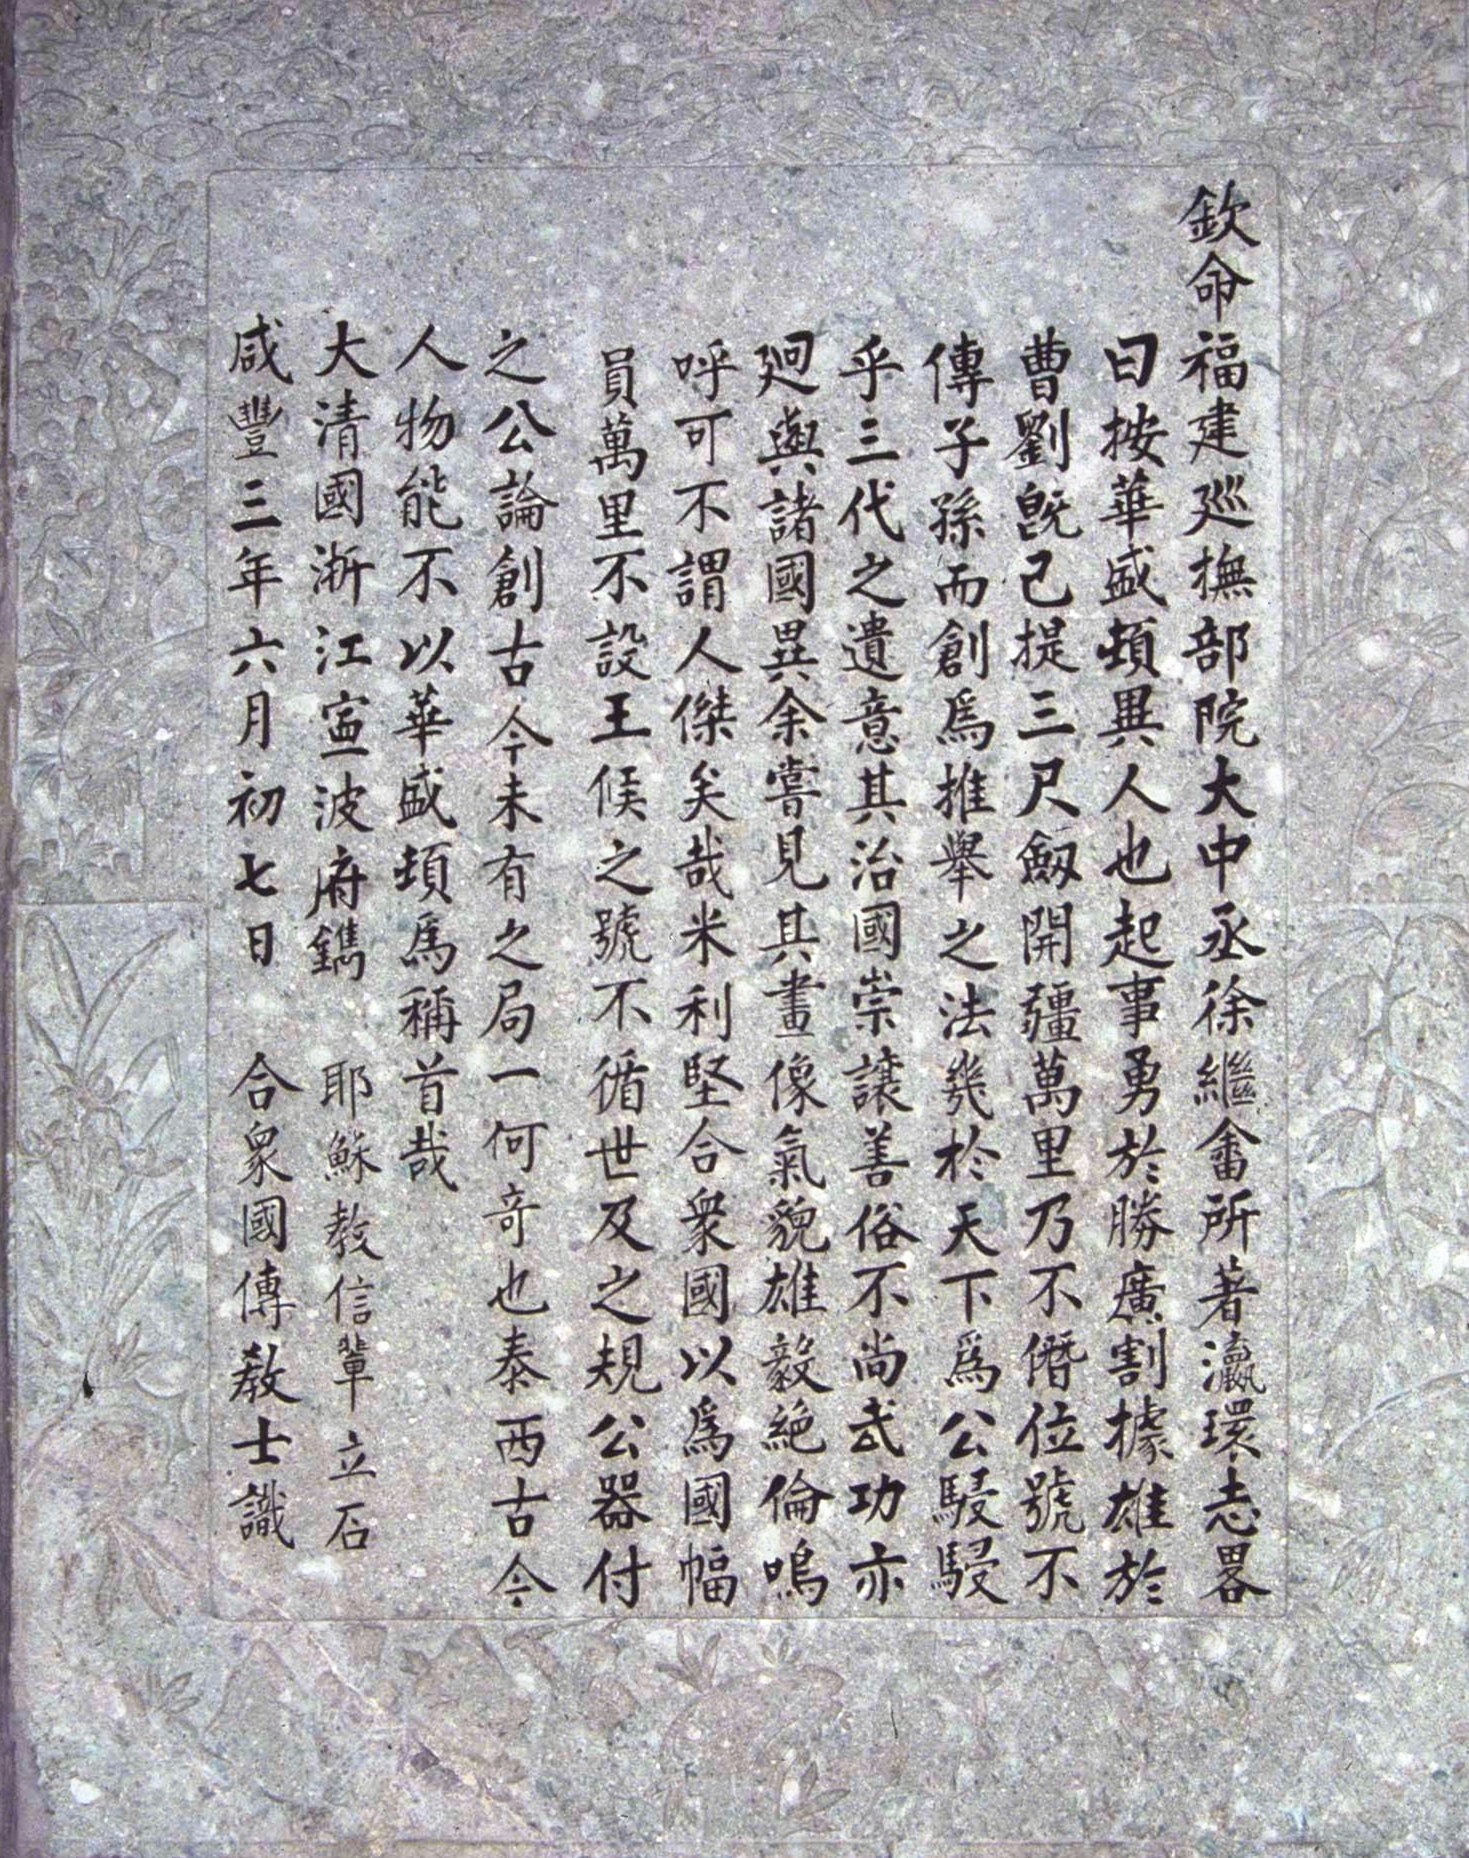 欽命福建巡撫部院大中丞徐繼畬所著瀛環志畧
曰按華盛頓異人也起事勇於勝廣割據雄於
曹劉旣已提三尺劔開疆萬里乃不僭位號不
傳子孫而創爲推舉之法幾於天下爲公駸駸
乎三代之遺意其治國崇讓善俗不尚武功亦
迥與諸國異余嘗見其畫像氣貌雄毅絕倫嗚
呼可不謂人傑矣哉米利堅合衆國以爲國幅
員萬里不設王侯之號不循世及之規公器付
之公論創古今未有之局一何奇也泰西古今
人物能不以華盛頓爲稱首哉
大清國浙江寍波府鐫 耶穌教信輩立石
咸豐三年六月初七日 合衆國傳教士識